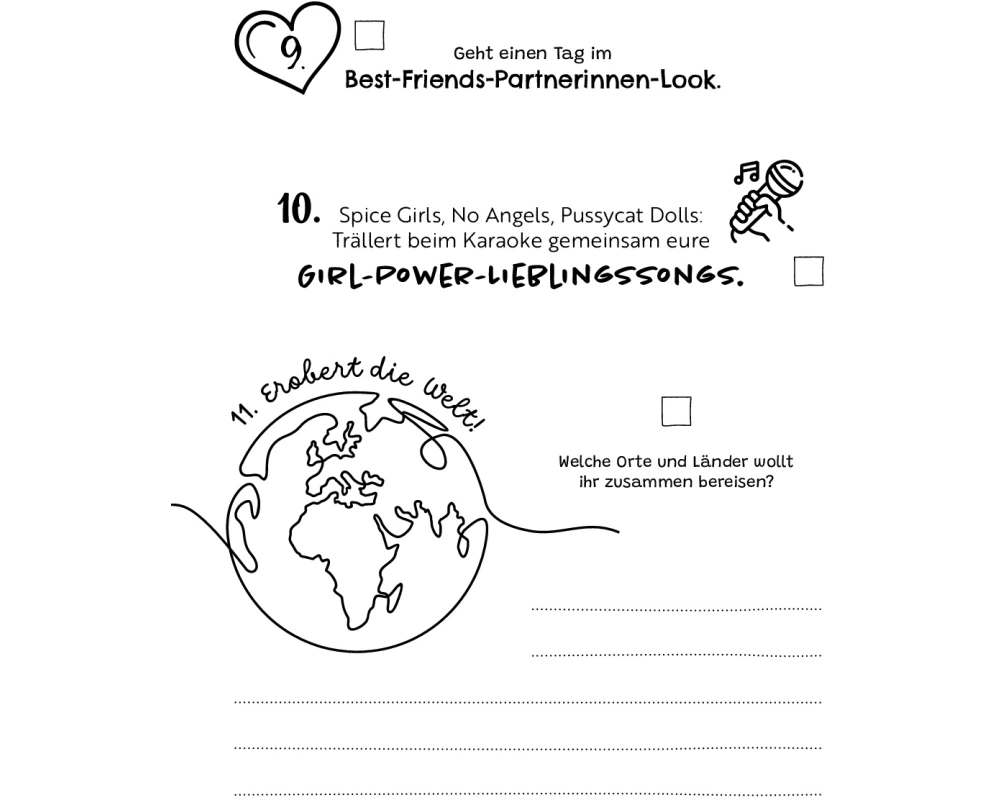 9.
Geht einen Tag im
Best-Friends-Partnerinnen-Look.
10. Spice Girls, No Angels, Pussycat Dolls:
Trällert beim Karaoke gemeinsam eure
GIRL-POWER-LIEBLINGSSONGS.
11. Erobert die Welt!
Welche Orte und Länder wollt
ihr zusammen bereisen?